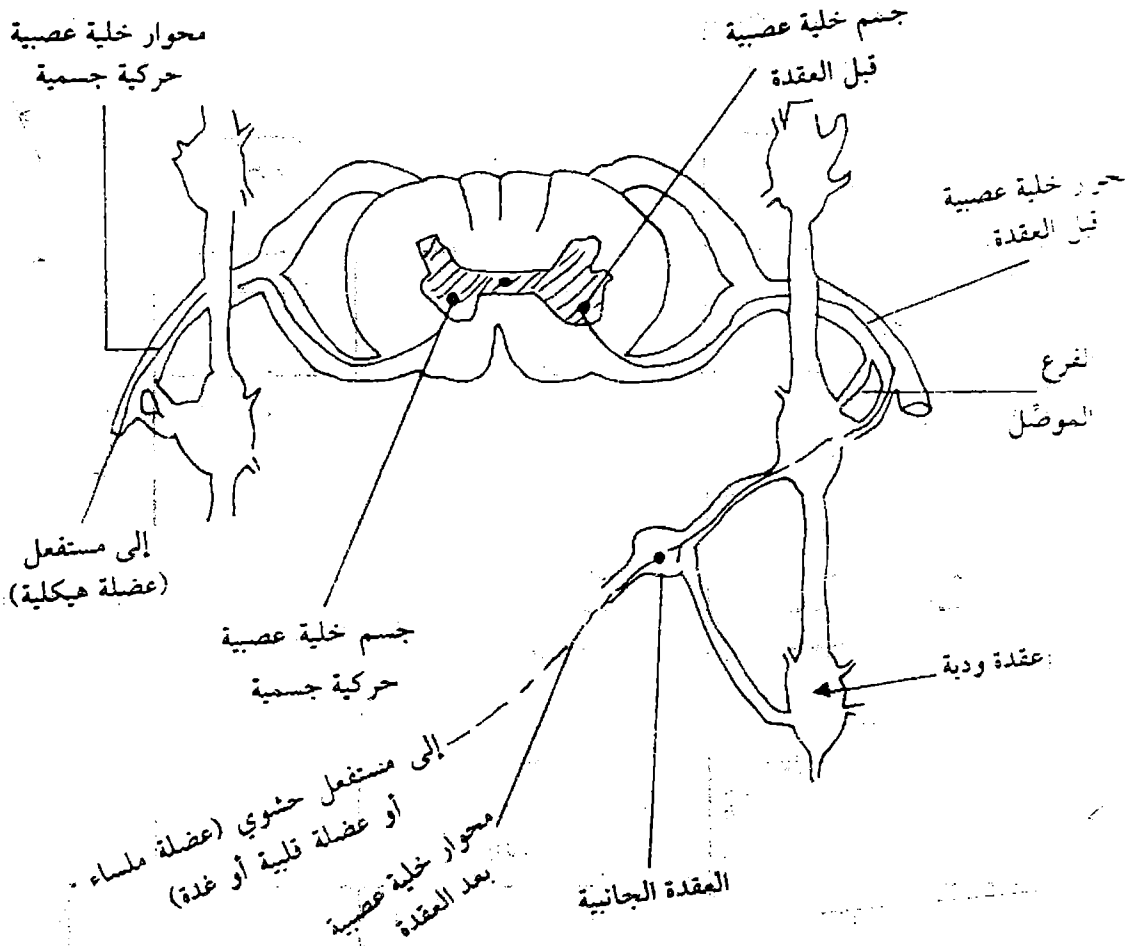 محوار خلية عصبية
حركية جسمية
جسم خلية عصبية
قبل العقدة
محوار خلية عصبية
قبل العقدة
الفرع
الموصِّل
إلى مستفعل
(عضلة هيكلية)
جسم خلية عصبية
حركية جسمية
عقدة ودية
إلى مستفعل حشوي (عضلة ملساء
أو عضلة قلبية أو غدة)
محوار خلية عصبية
بعد العقدة
العقدة الجانبية